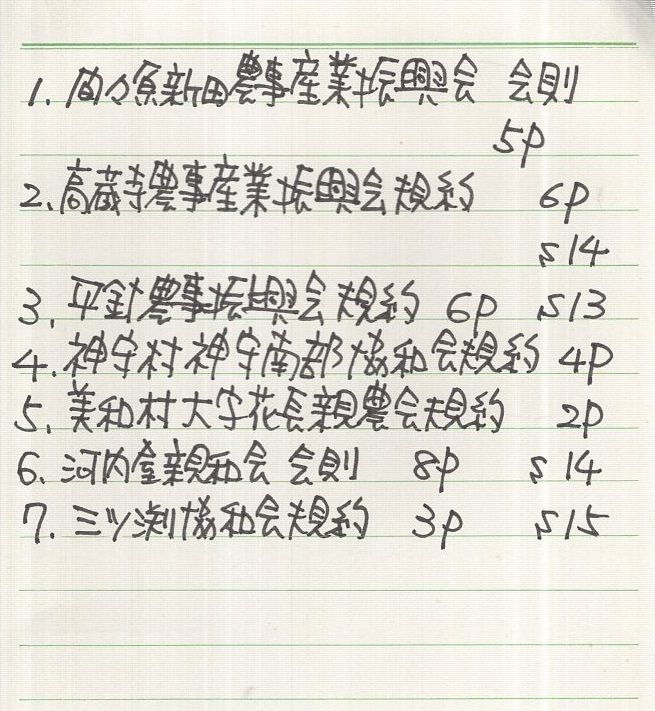 1. 間々原新田農事産業振興会 会則
5P
2. 高蔵寺農事産業振興会規約 6P
S14
3. 平針農事振興会規約 6P S13
4. 神守村神守南部協和会規約 4P
5. 美和村大字花長親農会規約 2P
6. 河内屋親和会 会則 8P S14
7. 三ツ渕協和会規約 3P S15